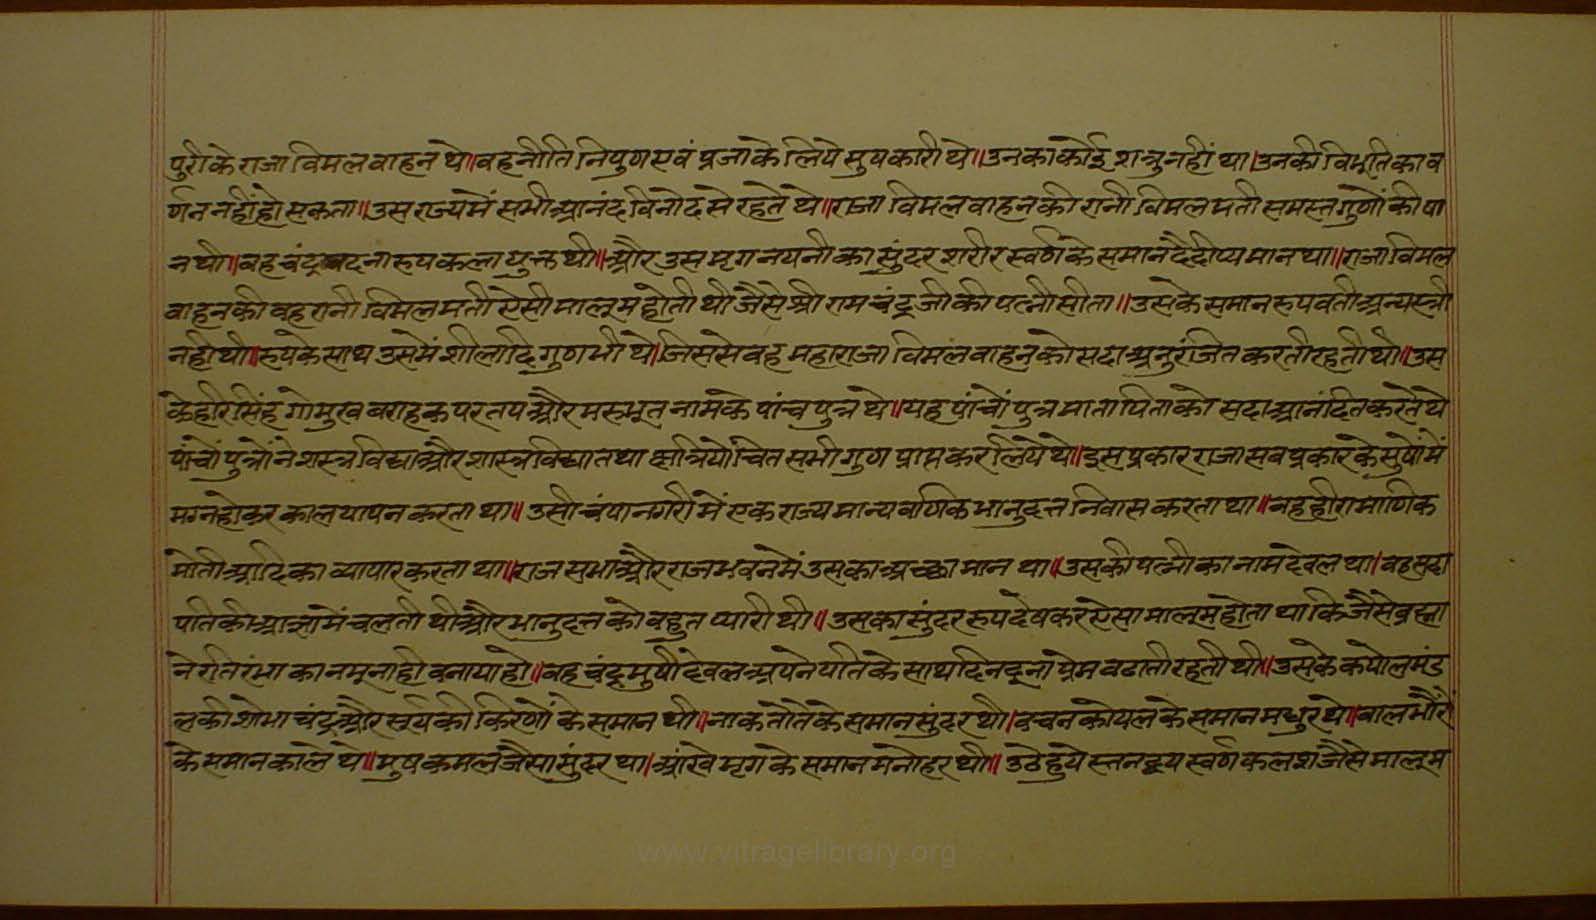 पुरी के राजा विमल वाहन थे॥वह नीति निपुण एवं प्रजा के लिये सुषकारी थे॥उनका कोई शत्रु नहीं था।उनकी विभूति का व
र्णन नहीं हो सकता॥उस राज्य में सभी आनंद विनोद से रहते थे॥राजा विमल वाहन की रानी विमलमती समस्त गुणों की षा
न थी॥वह चंद्रवदना रुप कला युक्त थी॥और उस मृगनयनी का सुंदर शरीर स्वर्ण के समान दैदीप्यमान था॥राजा विमल
वाहन की वह रानी विमलमती ऐसी मालूम होती थी जैसे श्री रामचंद्र जी की पत्नी सीता॥उसके समान रुपवती अन्य स्त्री
नही थी॥रुप के साथ उसमें शीलादि गुण भी थे॥जिससे वह महाराजा विमलंवाहन को सदा अनुरंजित करती रहती थी॥उस
के हरिसिंह गोमुख बराहक परतप और मरुभूत नाम के पांच पुत्र थे॥यह पांचों पुत्र माता पिता को सदा आनंदित करते थे
पांचों पुत्रों ने शस्त्र विद्या और शास्त्र विद्या तथा क्षत्रियोचित सभी गुण प्राप्त कर लिये थे॥इस प्रकार राजा सब प्रकार के सुषों में
मग्न होकर काल यापन करता था॥उसी चंपानगरी में एक राज्यमान्य वणिक भानुदत्त निवास करता था॥वह हीरा माणिक
मोती आदि का व्यापार करता था॥राज सभा और राजभवन में उसका अच्छा मान था॥उसकी पत्नी का नाम देवल था।वह सदा
पति की आज्ञा में चलती थी और भानुदत्त को बहुत प्यारी थी॥उसका सुंदर रुप देषकर ऐसा मालूम होता था कि जैसे ब्रह्मा
ने रतिरंभा का नमूना ही बनाया हो॥वह चंद्रमुषी देवल अपने पति के साथ दिन दूना प्रेम बढाती रहती थी॥उसके कपोल मंड
ल की शोभा चंद्र और सूर्य की किरणों के समान थी॥नाक तोते के समान सुंदर थी।वचन कोयल के समान मधुर थे॥बाल भौंरों
के समान काले थे॥मुष कमल जैसा सुंदर था।आंखे मृग के समान मनोहर थी॥उठे हुये स्तन द्वय स्वर्ण कलश जैसे मालूम
www.vitragelibrary.org